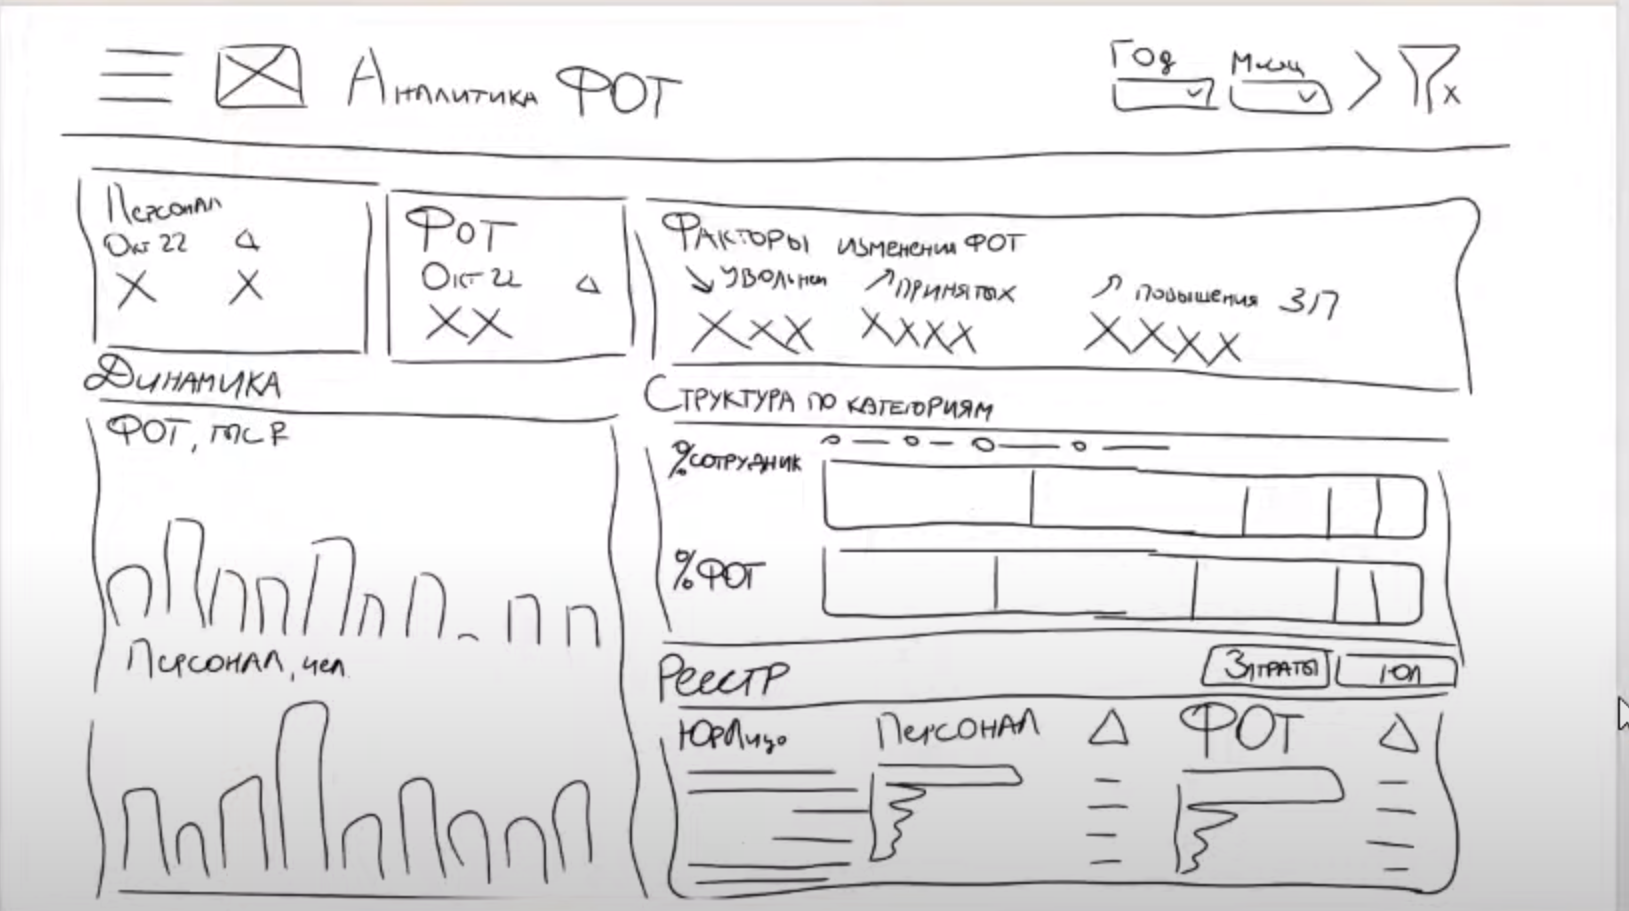 Аналитика ФОТ
Год
Месяц
Персонал
Окт 22 Δ
X X
ФОТ
Окт 22 Δ
XX
Факторы изменении ФОТ
↘ увольнен ↗ принятых ↗ повышения З/П
XXX XXXX XXXX
Динамика
ФОТ, млс ₽
Персонал, чел
Структура по категориям
% сотрудник
% ФОТ
Реестр
Затраты ЮЛ
Юрлицо Персонал Δ ФОТ Δ